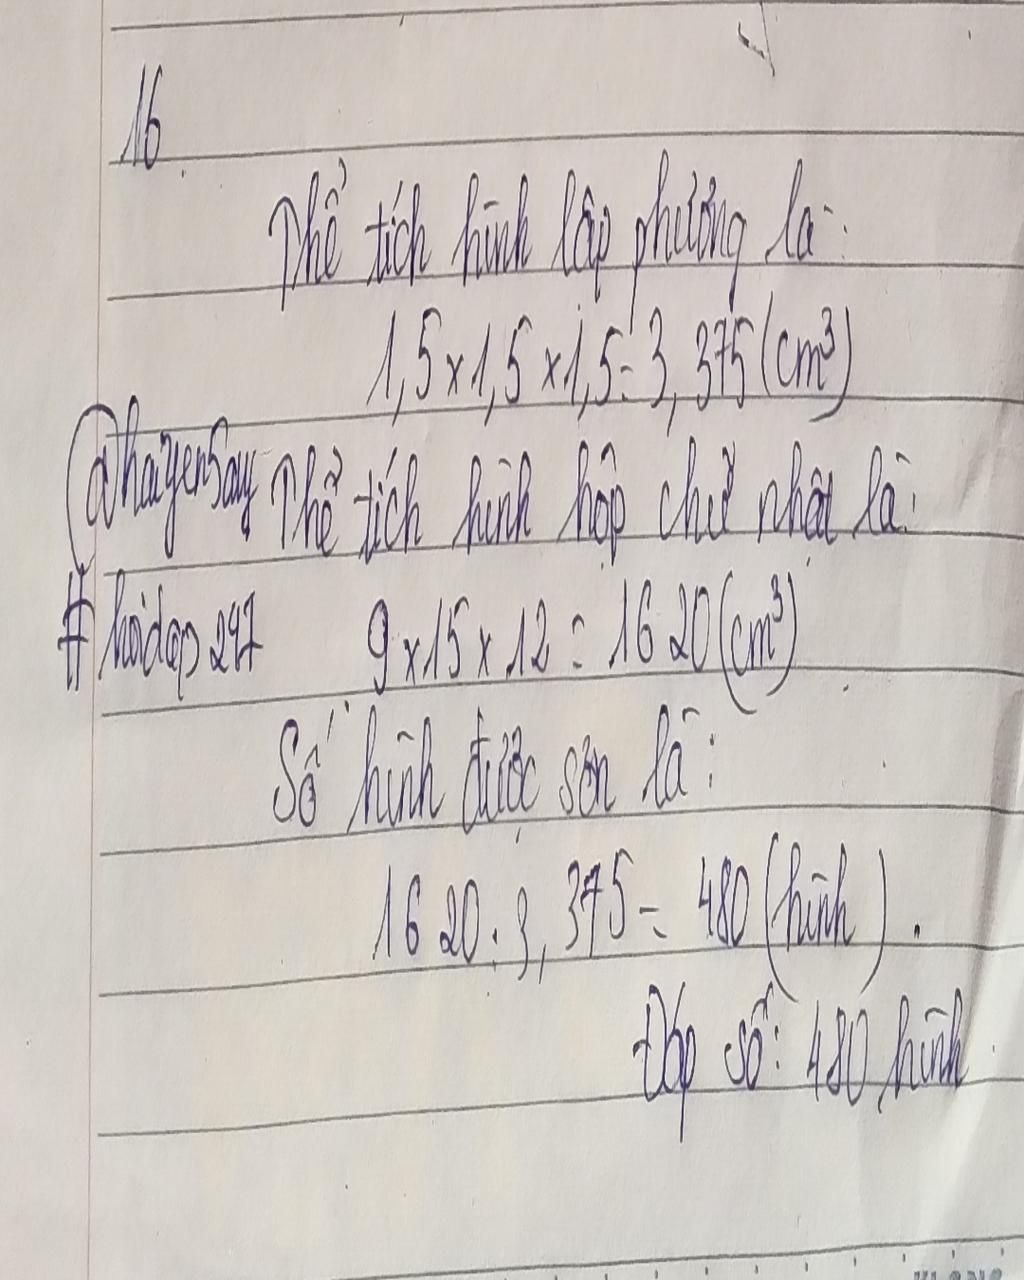 16
Thể tích hình lập phương là:
1,5 x 1,5 x 1,5 = 3,375 (cm³)
@haiyensay
Thể tích hình hộp chữ nhật là:
#hoidap247
9 x 15 x 12 = 1620 (cm³)
Số hình được sơn là:
1620 : 3,375 = 480 (hình).
Đáp số: 480 hình